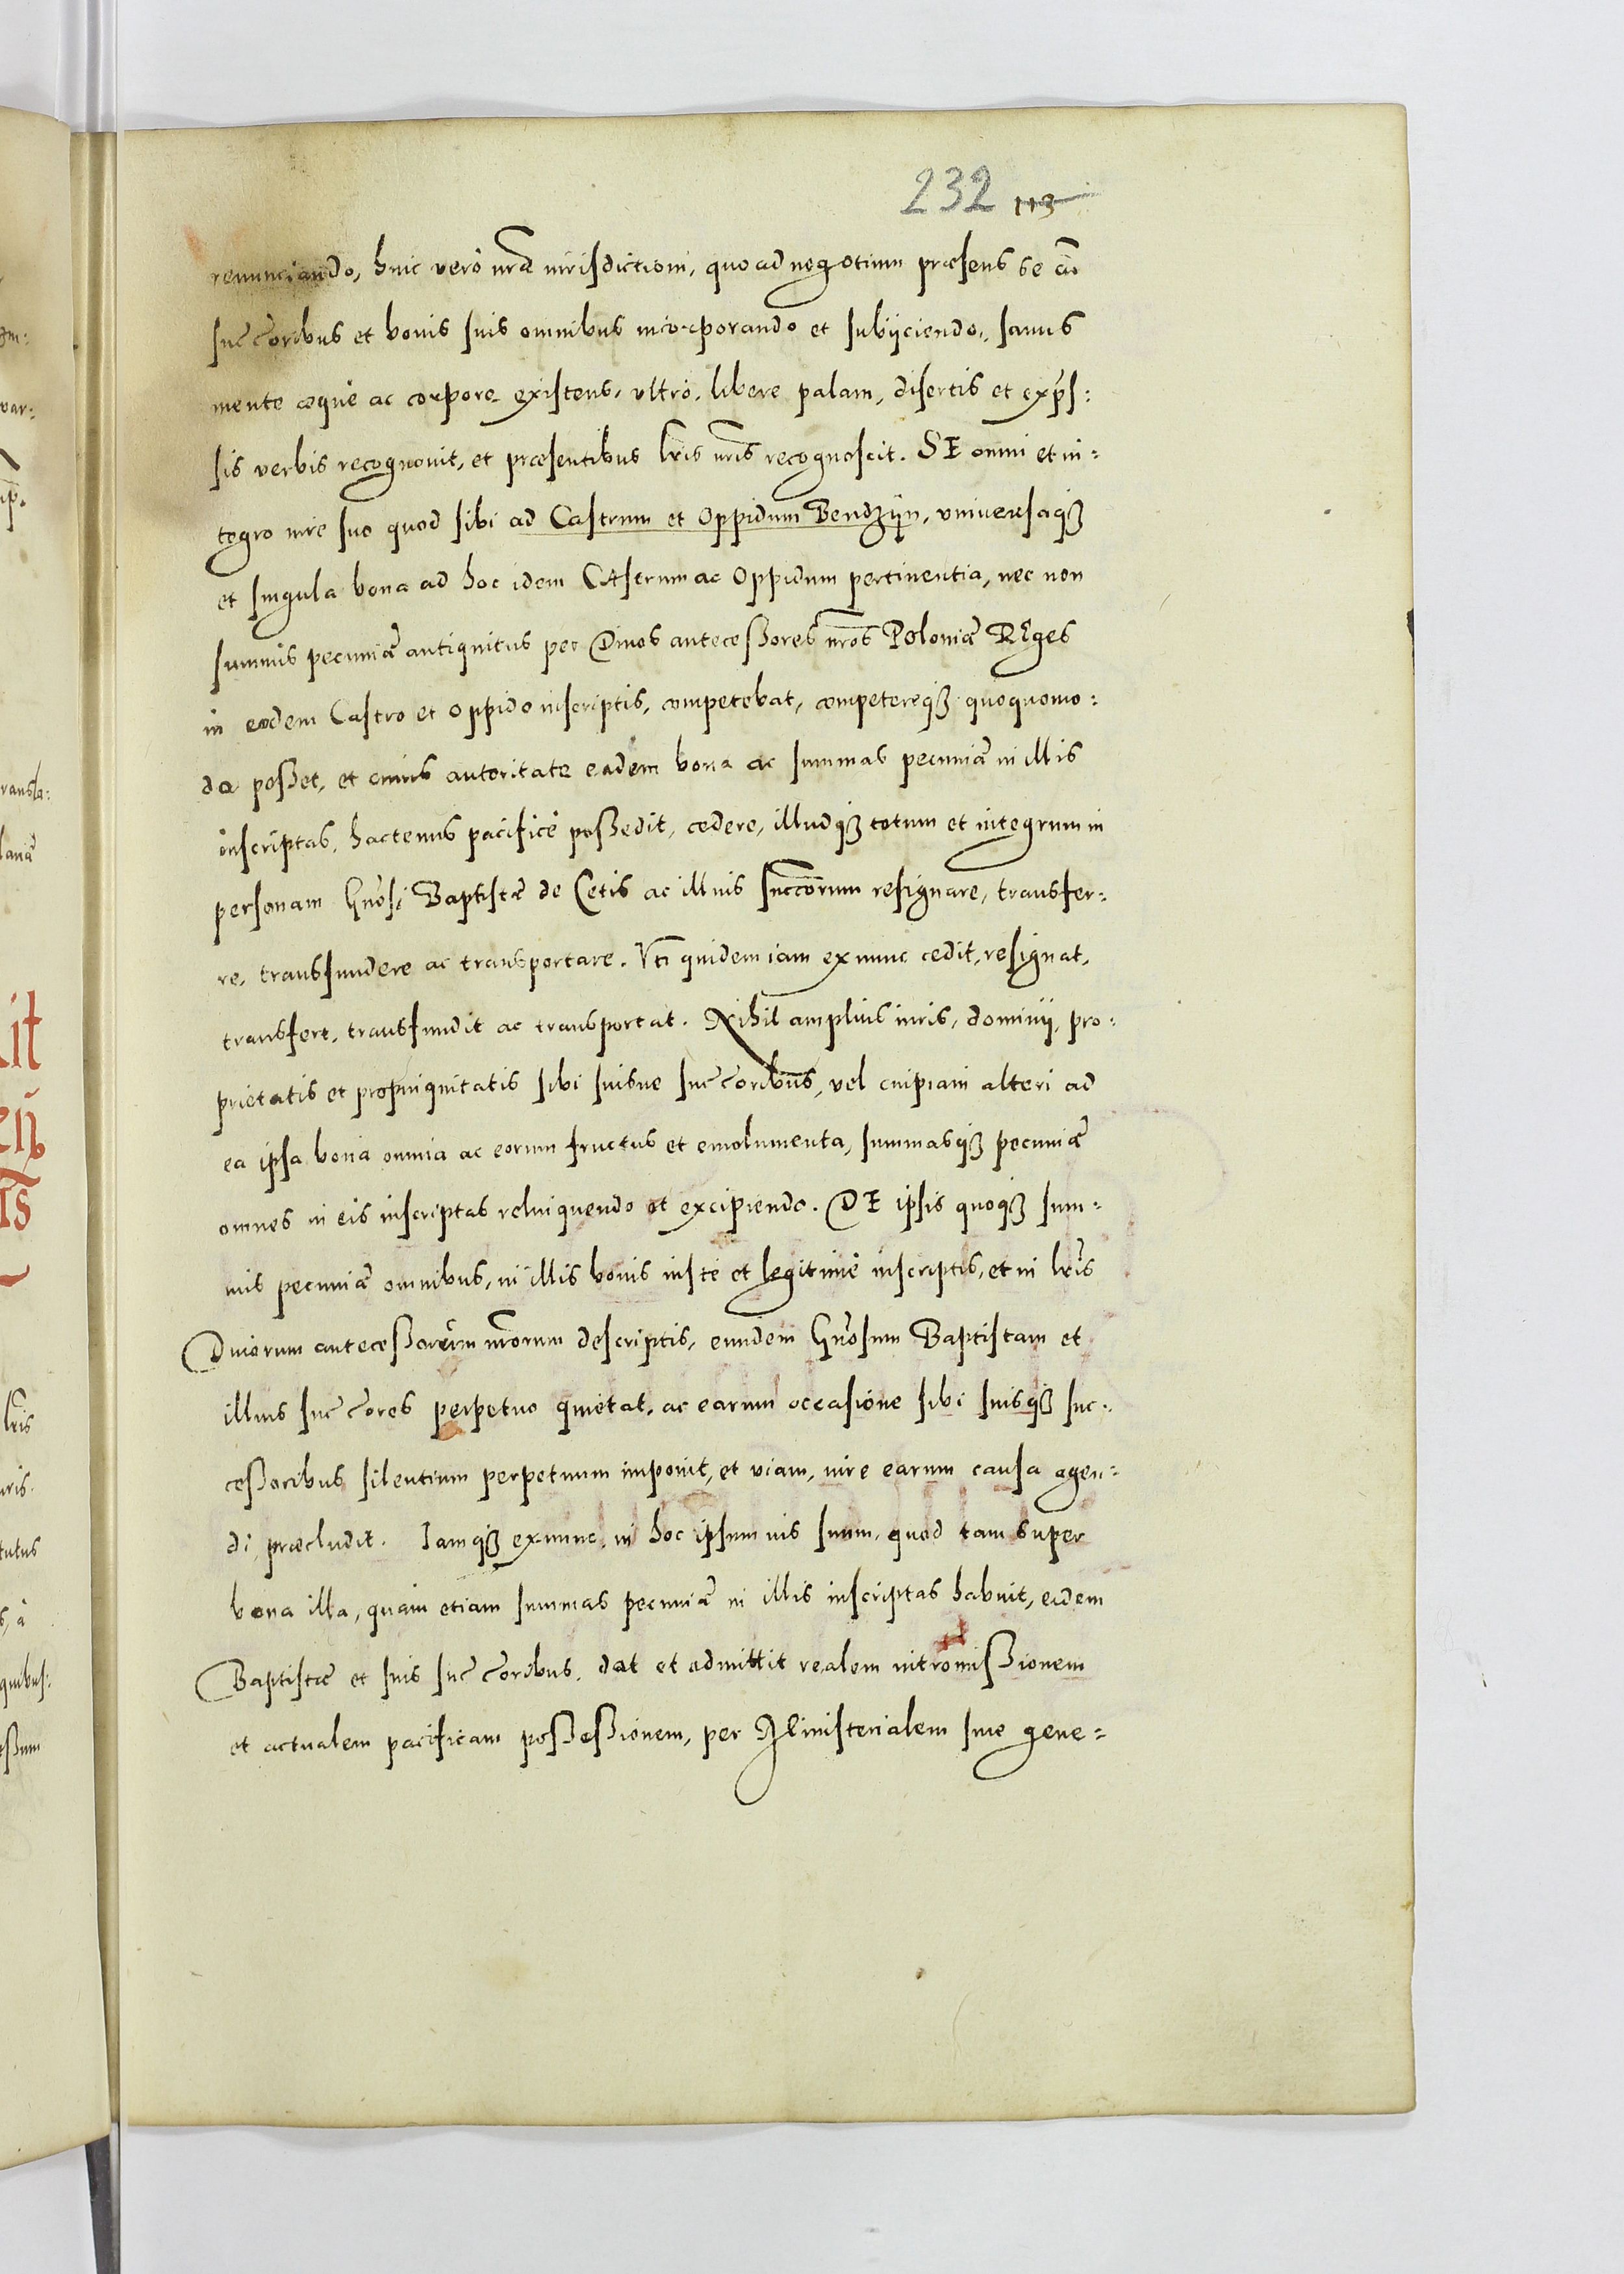 232 113
renunciando, huic verò nrã iurisdictioni, quo ad negotium præsens se cũ
succoribus et bonis suis omnibus incorporando et subijciendo, sanus
mente æquè ac corpore existens, vltrò, libere palam, disertis et exprs:
sis verbis recognouit, et præsentibus lris nris recognoscit. SE omni et in:
tegro iure suo quod sibi ad Castrum et Oppidum Bendzijn, vniuersaqȝ
et singula bona ad hoc idem CAstrum ac Oppidum pertinentia, nec non
summis pecuniaȓ antiquitus per Diuos antecessores nros Poloniæ REges
in eodem Castro et oppido inscriptis, competebat, competereqȝ quoquomo:
do posset, et cuius autoritate eadem bona ac summas pecuniaȓ in illis
inscriptas, hactenus pacificè possedit, cedere, illudqȝ totum et integrum in
personam Gnosi Baptistæ de Cetis ac illius succorum resignare, transfer:
re, transfundere ac transportare. Vti quidem iam ex nunc cedit, resignat,
transfert, transfundit ac transportat. Nihil amplius iuris, dominij, pro:
prietatis et propinquitatis sibi suisue succoribus, vel cuipiam alteri ad
ea ipsa bona omnia ac eorum fructus et emolumenta, summasqȝ pecuniaȓ
omnes in eis inscriptas relinquendo et excipiendo. DE ipsis quoqȝ sum:
mis pecuniaȓ omnibus, in illis bonis iustè et legitimè inscriptis, et in lris
Diuorum antecessorum nrorum descriptis, eundem Gnosum Baptistam et
illius succores perpetuo quietat, ac earum occasione sibi suisqȝ suc:
cessoribus silentium perpetuum imponit, et viam, iure earum causa agen:
di, præcludit. Iamqȝ ex nunc in hoc ipsum ius suum, quod tam super
bona illa, quàm etiam summas pecuniaȓ in illis inscriptas habuit, eidem
Baptistæ et suis succoribus, dat et admittit realem intromissionem
et actualem pacificam possessionem, per Ministerialem siue gene: